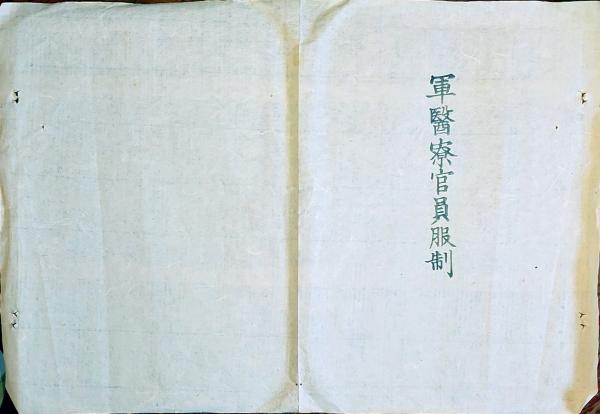 軍醫寮官員服制